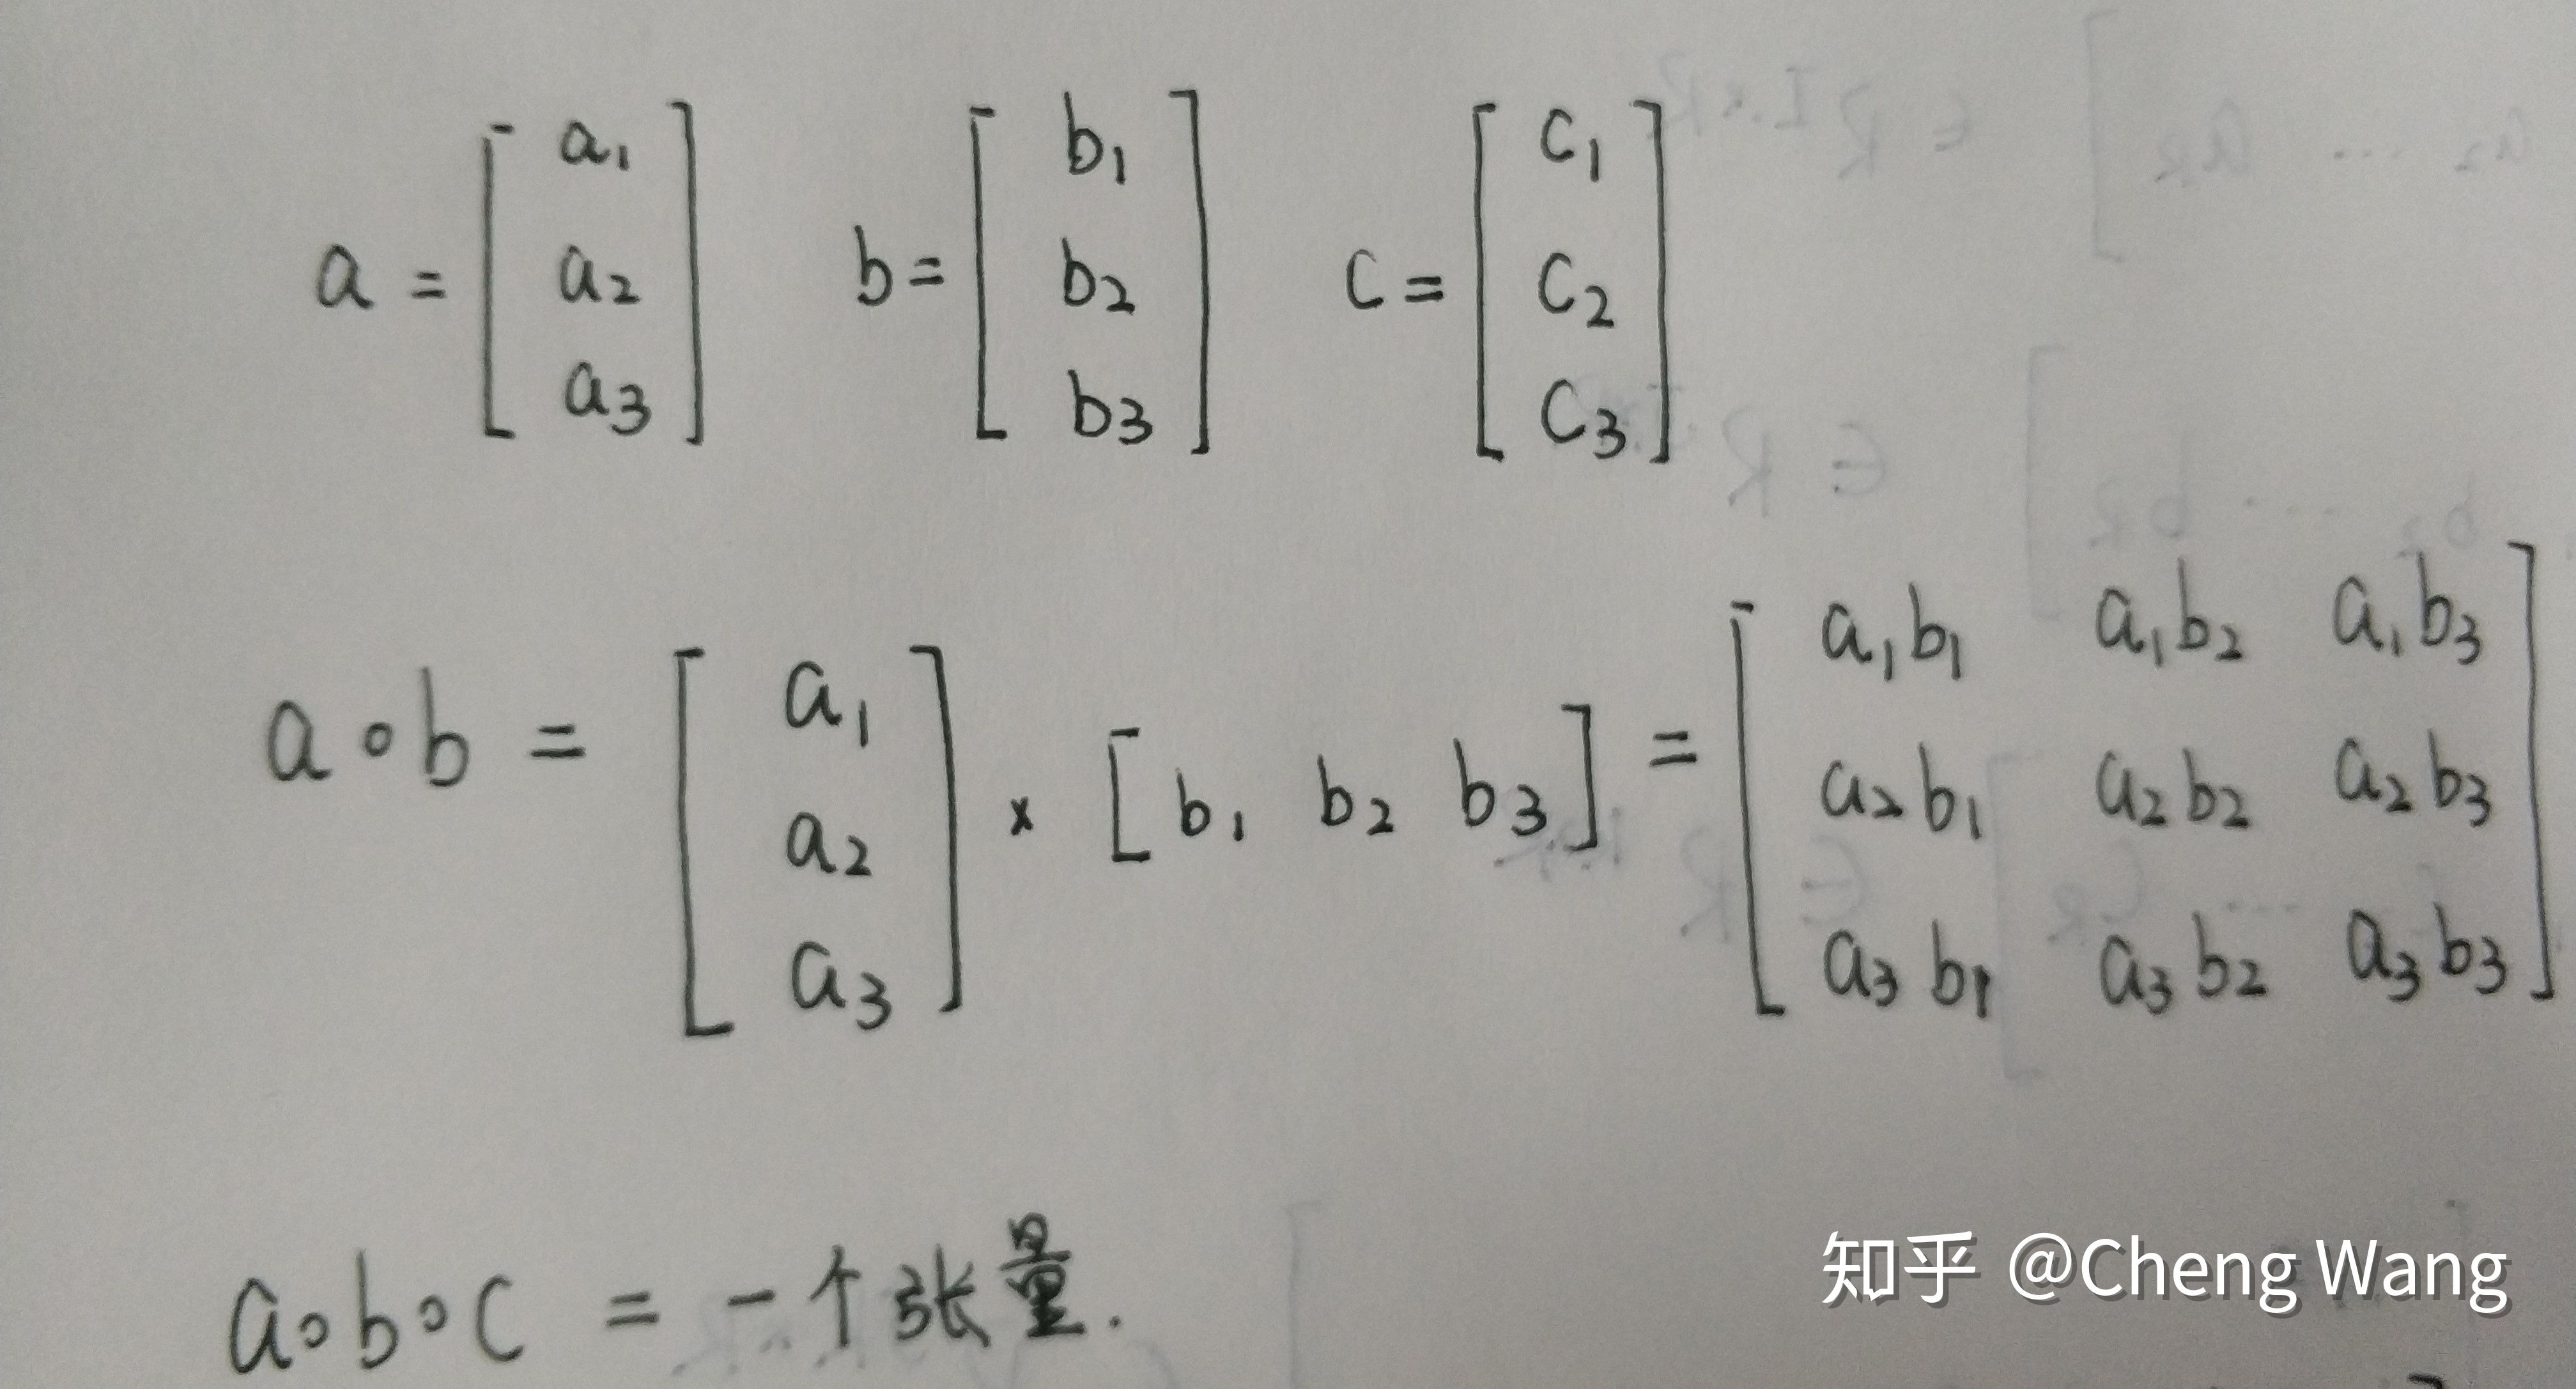 a = [ a₁ a₂ a₃ ] b = [ b₁ b₂ b₃ ] c = [ c₁ c₂ c₃ ]
a∘b = [ a₁ a₂ a₃ ] × [ b₁ b₂ b₃ ] = [ a₁b₁ a₁b₂ a₁b₃
a₂b₁ a₂b₂ a₂b₃
a₃b₁ a₃b₂ a₃b₃ ]
a∘b∘c = 一个张量.
知乎 @Cheng Wang